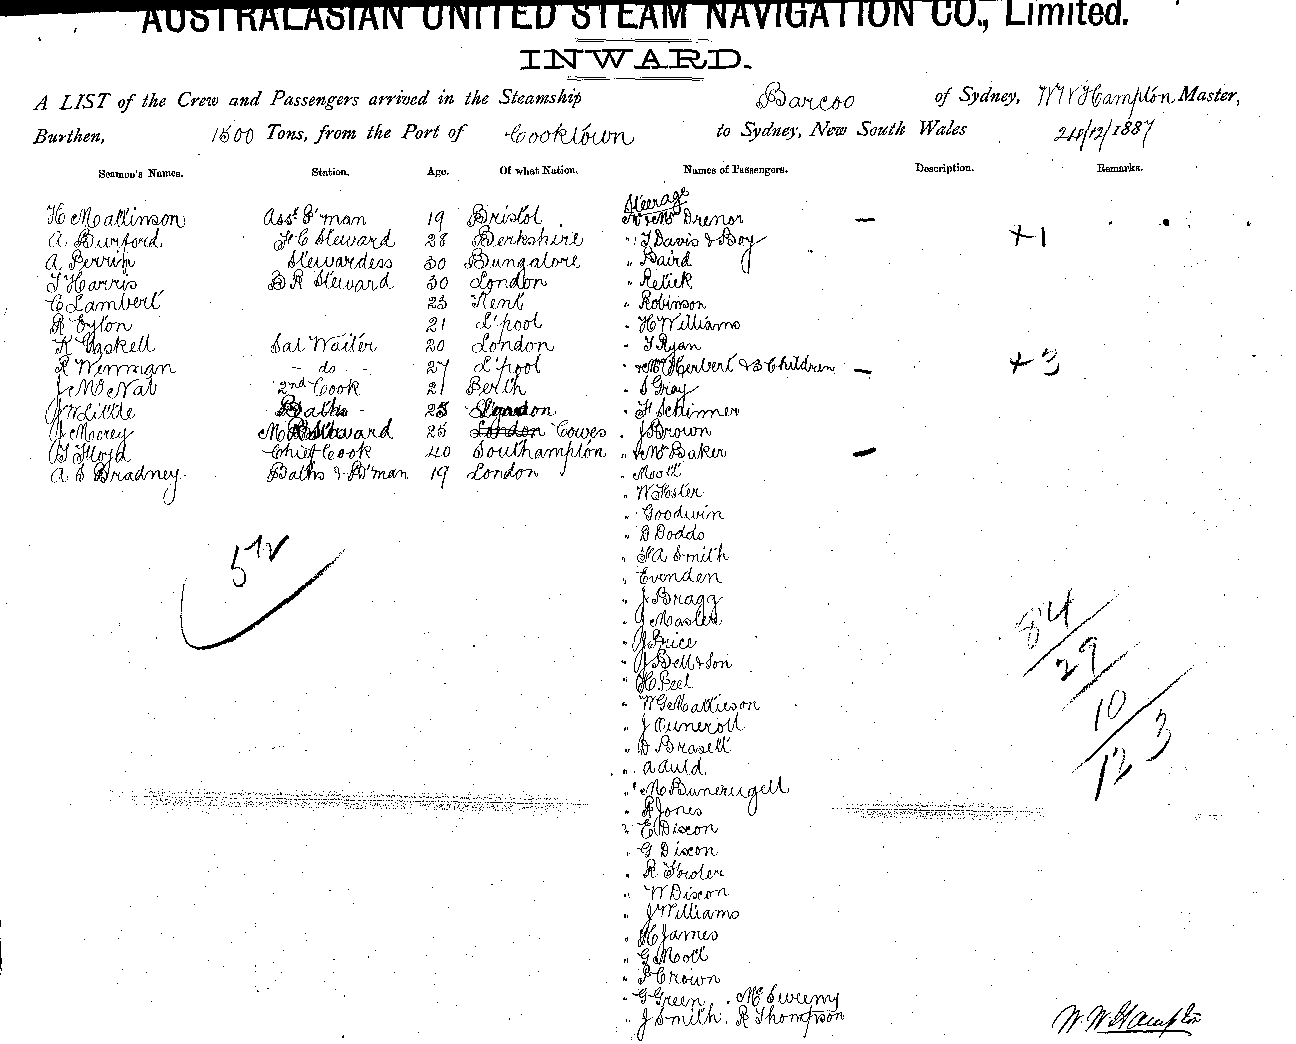 AUSTRALASIAN UNITED STEAM NAVIGATION CO., Limited.
INWARD.
A LIST of the Crew and Passengers arrived in the Steamship Barcoo of Sydney, W W Hampton Master,
Burthen, 1500 Tons, from the Port of Cooktown to Sydney, New South Wales 24/12/1887
Seamen's Names. Station. Age. Of what Nation. Names of Passengers. Description. Remarks.
Steerage
H Matlinson Asst P'man 19 Bristol Drenor
A. Burford F C Steward 28 Berkshire " T Davis & Boy +1
A Perrin Stewardess 30 Bungalore " Baird
T Harris B R Steward 30 London " Retick
C Lambert 23 Kent " Robinson
R Eylon 21 L'pool " H Williams
K Gaskell Sal Waiter 20 London " T Ryan
R Wenman - do - 27 L'pool " Mrs Herbert & 3 Children +3
J McNab 2nd Cook 21 Perth " S Gray
J W Little Baths 25 London " F Schinner
J Morey M R Steward 25 London Cowes " J Brown
G Floyd Chief Cook 40 Southampton " Mrs Baker
A S Bradney Baths & P'man 19 London " Mott
" W Foster
" Goodwin
" D Dodds
" F A Smith
" Evenden
" J Bragg
" J Masler
" J Price
" J Bell & Son
" H Peel
" W G Mattieson
" J
" D Brasell
" A Auld
" M
" P Jones
" E Discon
" G Discon
" R Fowler
" W Discon
" J Williams
" H James
" G Mott
" P Crown
" G Green. McSweeny
" J Smith. R Thompson
52
84
29
10
123
W. W. Hampton